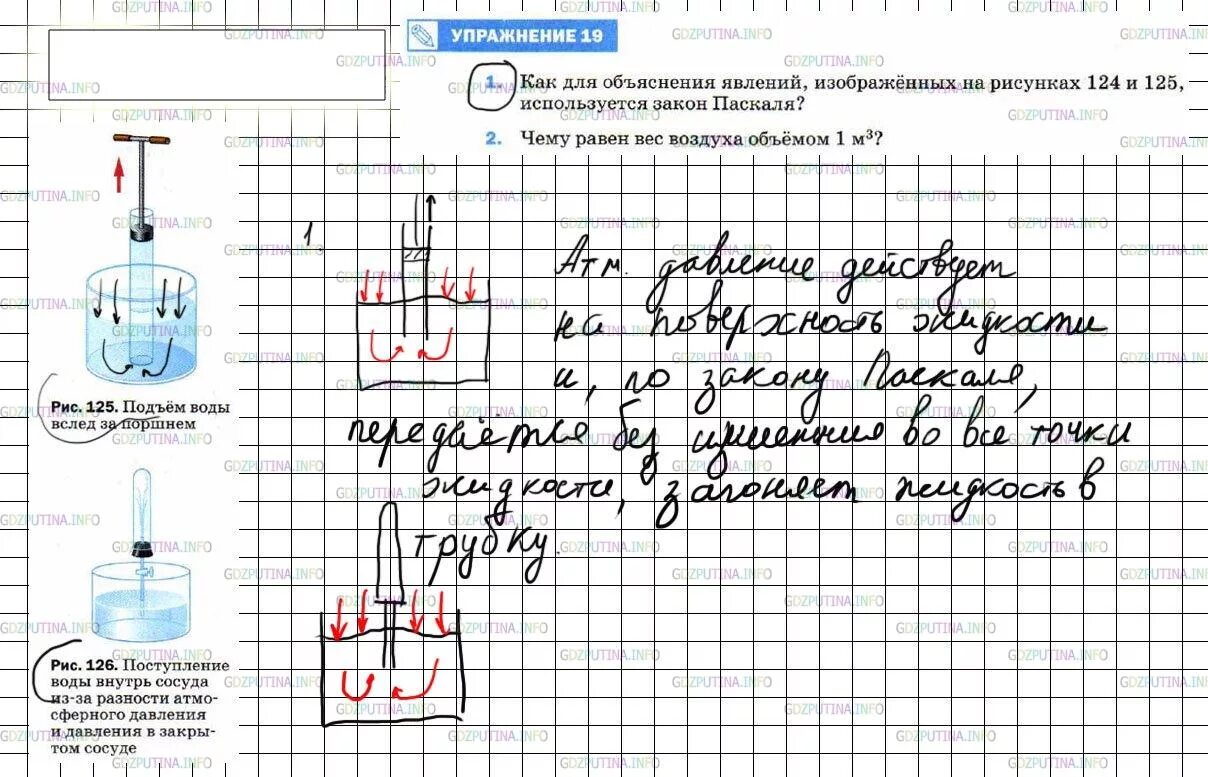 УПРАЖНЕНИЕ 19
1. Как для объяснения явлений, изображённых на рисунках 124 и 125,
используется закон Паскаля?
2. Чему равен вес воздуха объёмом 1 м³?
1.
Атм. давление действует
на поверхность жидкости
и, по закону Паскаля,
передаётся без изменения во все точки
жидкости, загоняет жидкость в
трубку.
Рис. 125. Подъём воды
вслед за поршнем
Рис. 126. Поступление
воды внутрь сосуда
из-за разности атмо-
сферного давления
и давления в закры-
том сосуде
GDZPUTINA.INFO